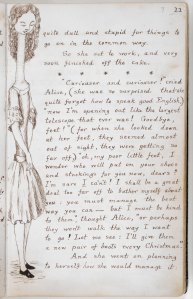 22
quite dull and stupid for things to
go on in the common way.
So she set to work, and very
soon finished off the cake.
* * * * *
"Curiouser and curiouser!" cried
Alice, (she was so surprised that she
quite forgot how to speak good English,)
"now I'm opening out like the largest
telescope that ever was! Goodbye,
feet!" (for when she looked down
at her feet, they seemed almost
out of sight, they were getting so
far off,) "oh, my poor little feet, I
wonder who will put on your shoes
and stockings for you now, dears?
I'm sure I can't! I shall be a great
deal too far off to bother myself about
you: you must manage the best
way you can — but I must be kind
to them," thought Alice, "or perhaps
they won't walk the way I want
to go! Let me see: I'll give them
a new pair of boots every Christmas."
And she went on planning
to herself how she would manage it